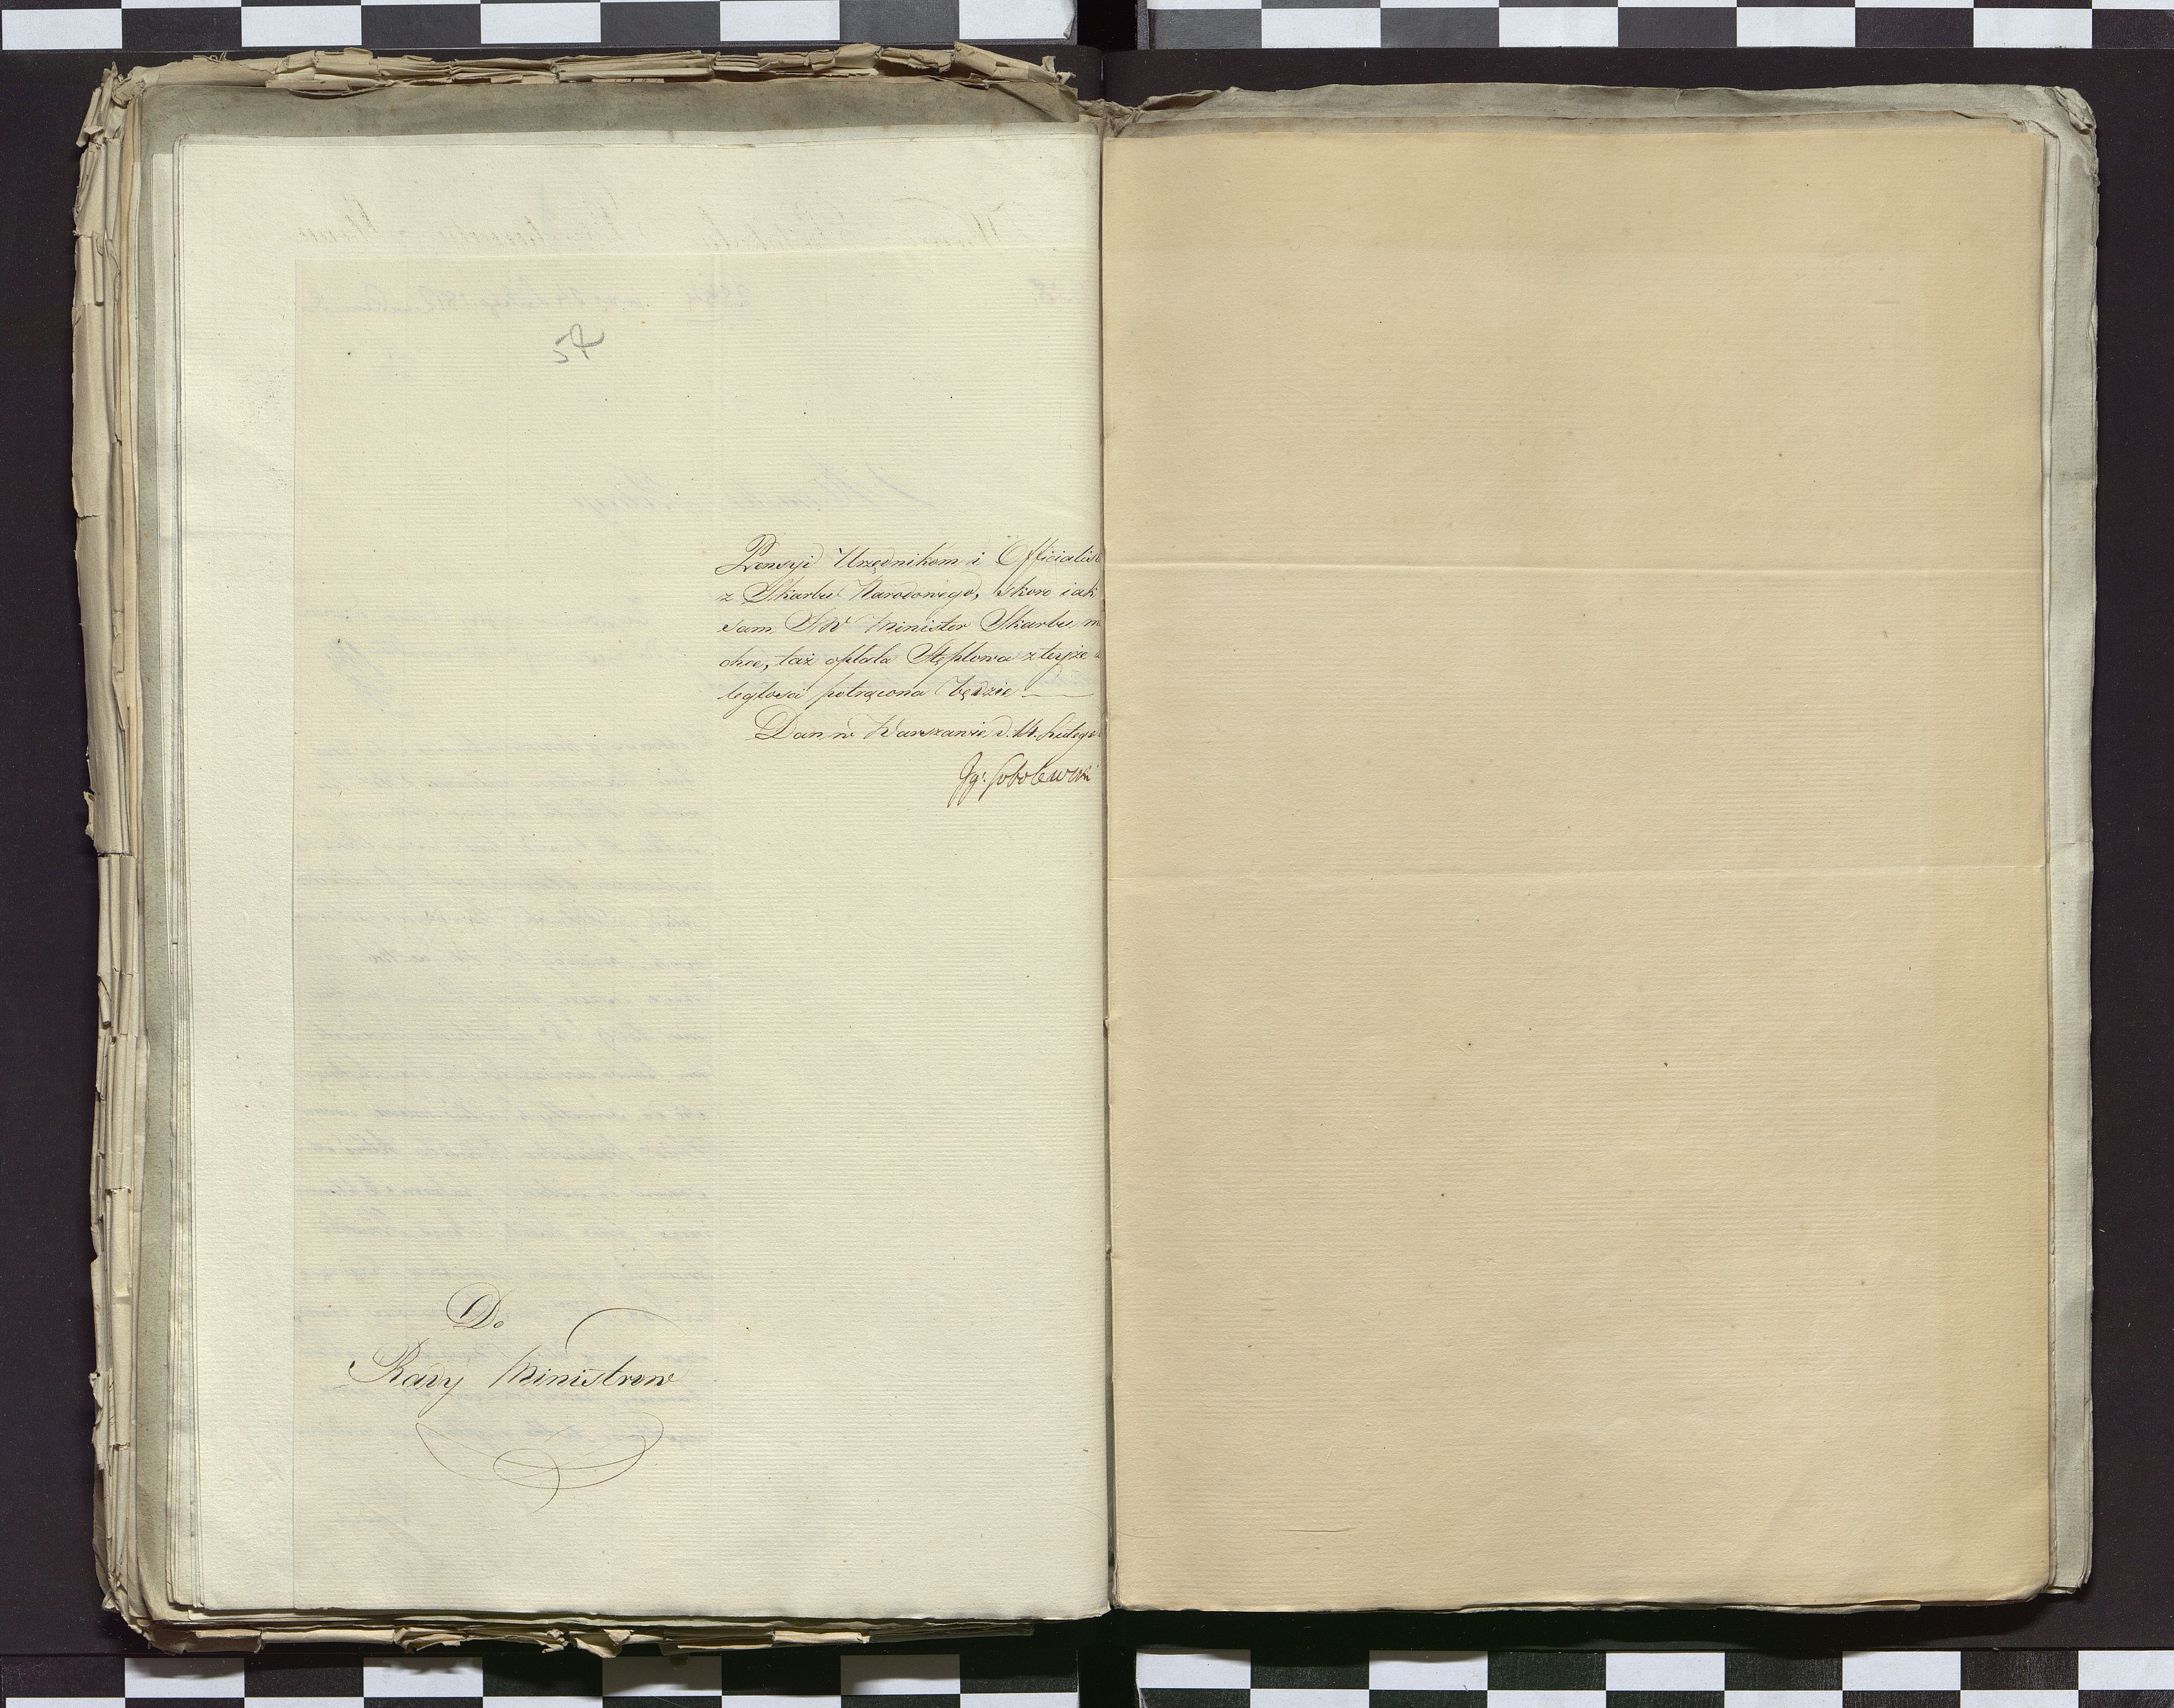 57
Pensyi Urzędnikom i Officialis
z Skarbu Narodowego, skoro iak
sam JW Minister Skarbu
chce, taż opłata Stęplowa z teyże
ległości potrącona będzie
Dan w Warszawie d. 14. Lutego
Ig: Sobolewski
Do
Rady Ministrow